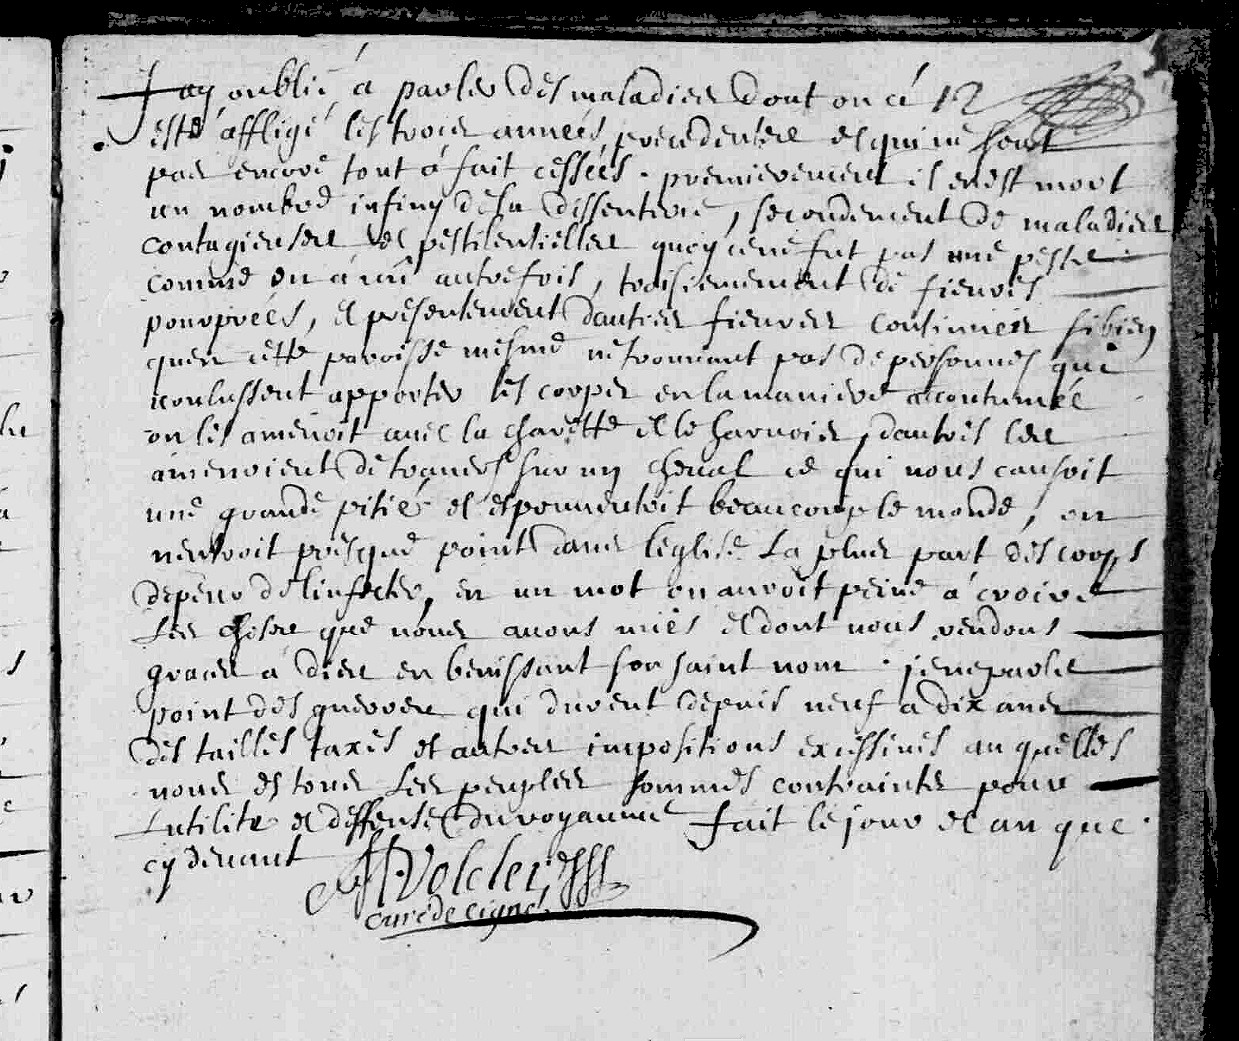 Jay oublié á parler des maladies dont on á 12
esté affligé les trois années precedentes et qui ne sont
pas encore tout á fait cessées. premierement il en est mort
un nombre infiny de la dissenterie, secondement de maladies
contagieuses et pestilentielles quoy ce ne fut pas une peste
comme on á vû autrefois, troisiemement de fievres
pourprées, et presentement dautres fievres continues si bien
quen cette paroisse mesme ne trouvant pas de personnes qui
voulussent apporter les corps en la maniere acoutumée
on les amenoit avec la charette et le harnois, dautres les
amenoient de travers sur un cheval ce qui nous causoit
une grande pitié et espouventoit beaucoup le monde, on
nentroit presque point dans leglise la plus part des corps
de peur de linfecter, en un mot on auroit peine á croire
Les choses que nous avons vües et dont nous rendons
graces a dieu en benissant son saint nom. je ne parle
point des guerres qui durent depuis neuf a dix ans
des tailles taxes et autres impositions excessives auquelles
nous et tous Les peuples sommes contraints pour
Lutilite et deffense du royaume fait le jour et an que
cy devant Volcler
curé de Cigné